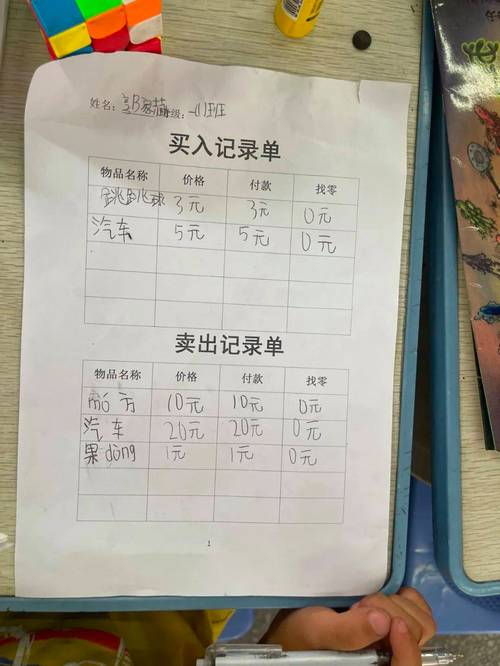 姓名： 班级：一11班
买入记录单
物品名称 价格 付款 找零
跳跳球 3元 3元 0元
汽车 5元 5元 0元
卖出记录单
物品名称 价格 付款 找零
mó方 10元 10元 0元
汽车 20元 20元 0元
果dòng 1元 1元 0元
1